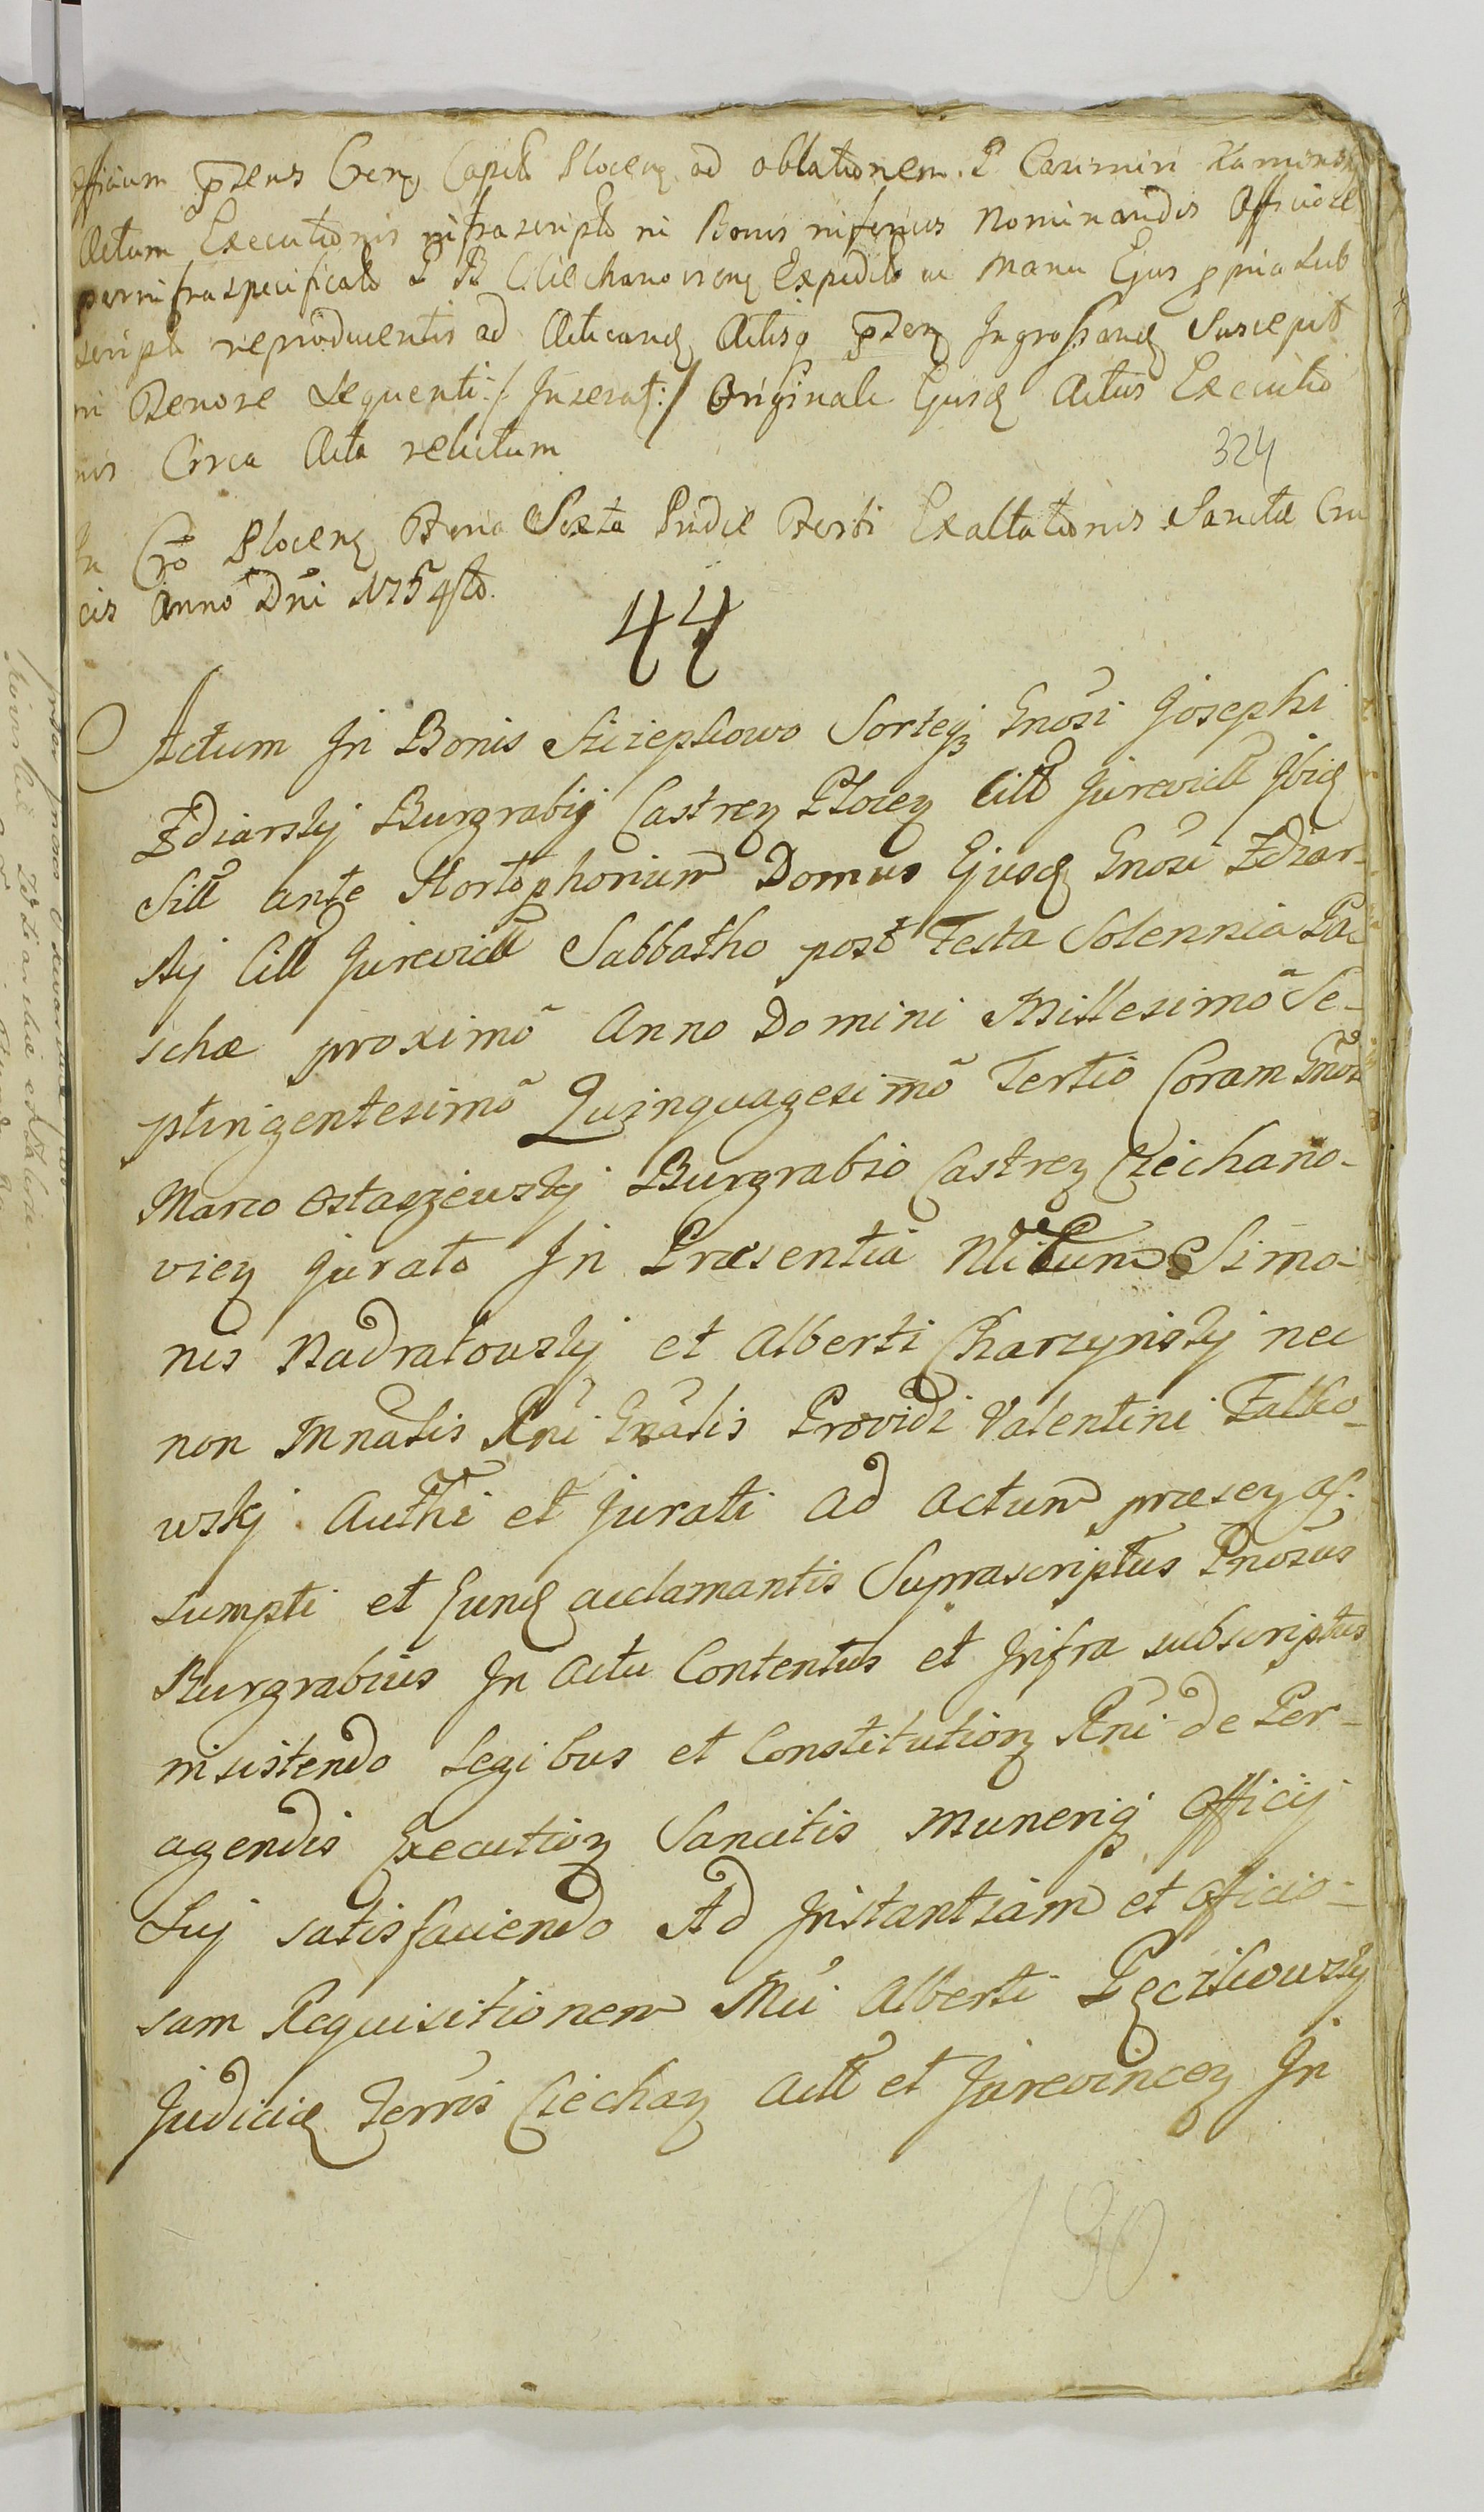 Officium pñens Cren Capitle Plocen ad oblationem P Casimiri Kaminsky
Actum Executionis infrascripto in Bonis inferius Nominandis Officiose
per infraspecificato P B Ciechanoviens Expedito ac Manu Ejus ppria Sub
script reproducentis ad Acticand Actisq pñen Ingrossand Suscepit
in Tenore Sequenti :/: Inserat :/: Originale Ejusd Actus Executio
nis Circa Acta relictum
324
In Cro Plocen Feria Sexta Pridie Festi Exaltationis Sanctæ Cru
cis Anno Dni 1754to.
44
Actum In Bonis Szczepkowo Sorteqz Gnosi Josephi
Zdiarskj Burgrabij Castren Plocen Citt Jurevict Ibid
Sitt ante Hortophorium Domus Ejusd Gnosi Zdziar-
skj Citt Jurevict Sabbatho post Festa Solennia Pa-
schæ proximo Anno Domini Millesimo Se-
ptingentesimo Quinquagesimo Tertio Coram Gnoso
Marco Ostaszewskj Burgrabio Castren Ciechano-
vien Jurato In Præsentia Nlium Simo-
nis Nadratowskj et Alberti Charzynskj nec
non Mnalis Rni Gnalis Providi Valentini Falko-
wskj Authi et Jurati ad actum præsen as-
sumpti et Eund acclamantis Suprascriptus Gnosus
Burgrabius In actu Contentus et Infra subscriptus
insistendo Legibus et Constitution Rni de Per-
agendis Execution Sancitis Munerig Officij
Suj satisfaciendo Ad Instantiam et officio-
sam Requisitionem Mci Alberti Pęczkowskj
Judicis Terris Ciechan Act et Jurevincen In
190